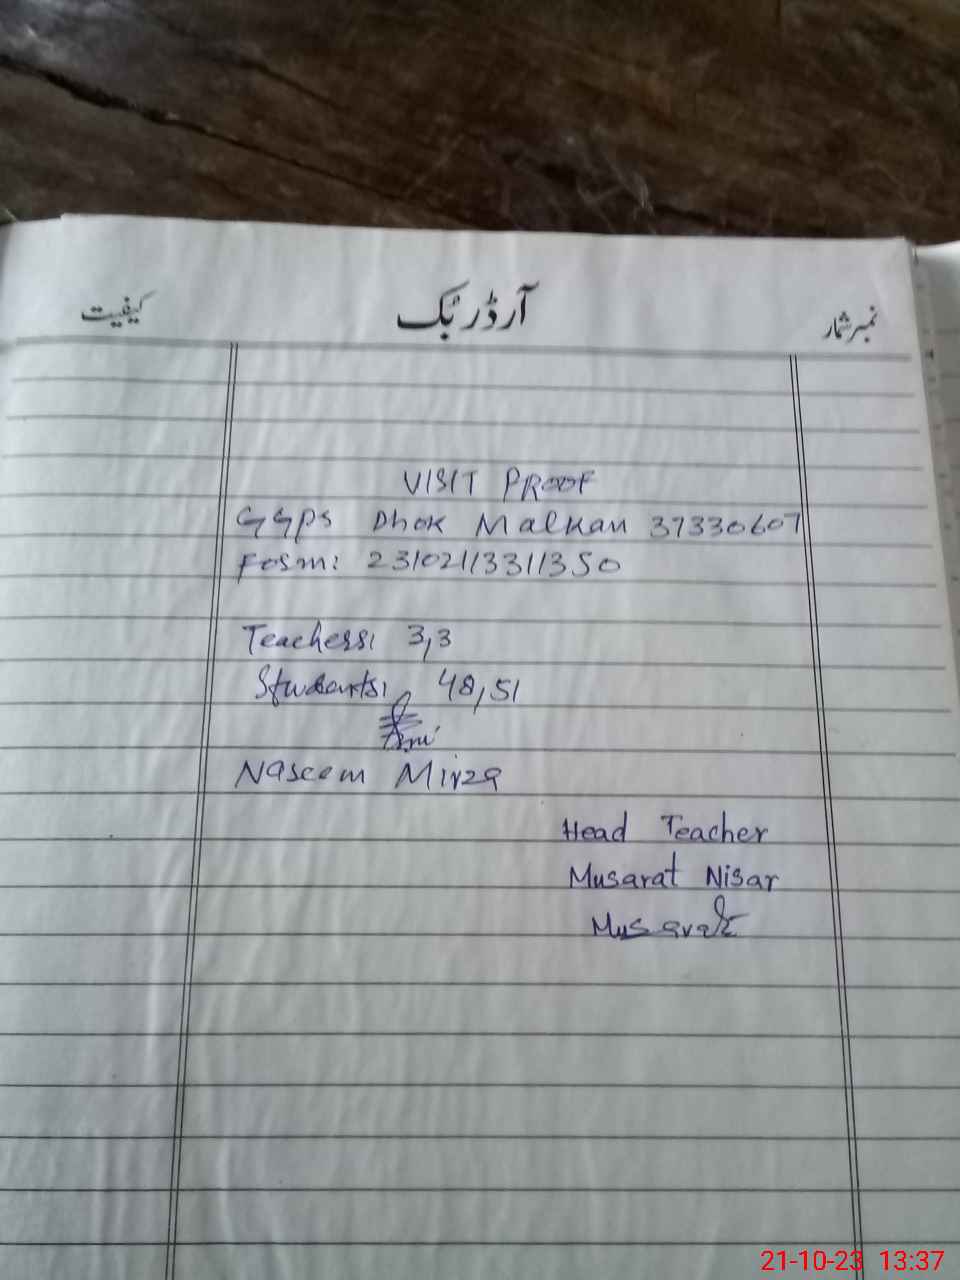 نمبر شمار آرڈر بُک کیفیت
VISIT PROOF
GGPS Dhok Malkan 37330607
Fosm: 23102113311350
Teachers: 3,3
Students: 48,51
Naseem Mirza
Head Teacher
Musarat Nisar
Musarat
21-10-23 13:37